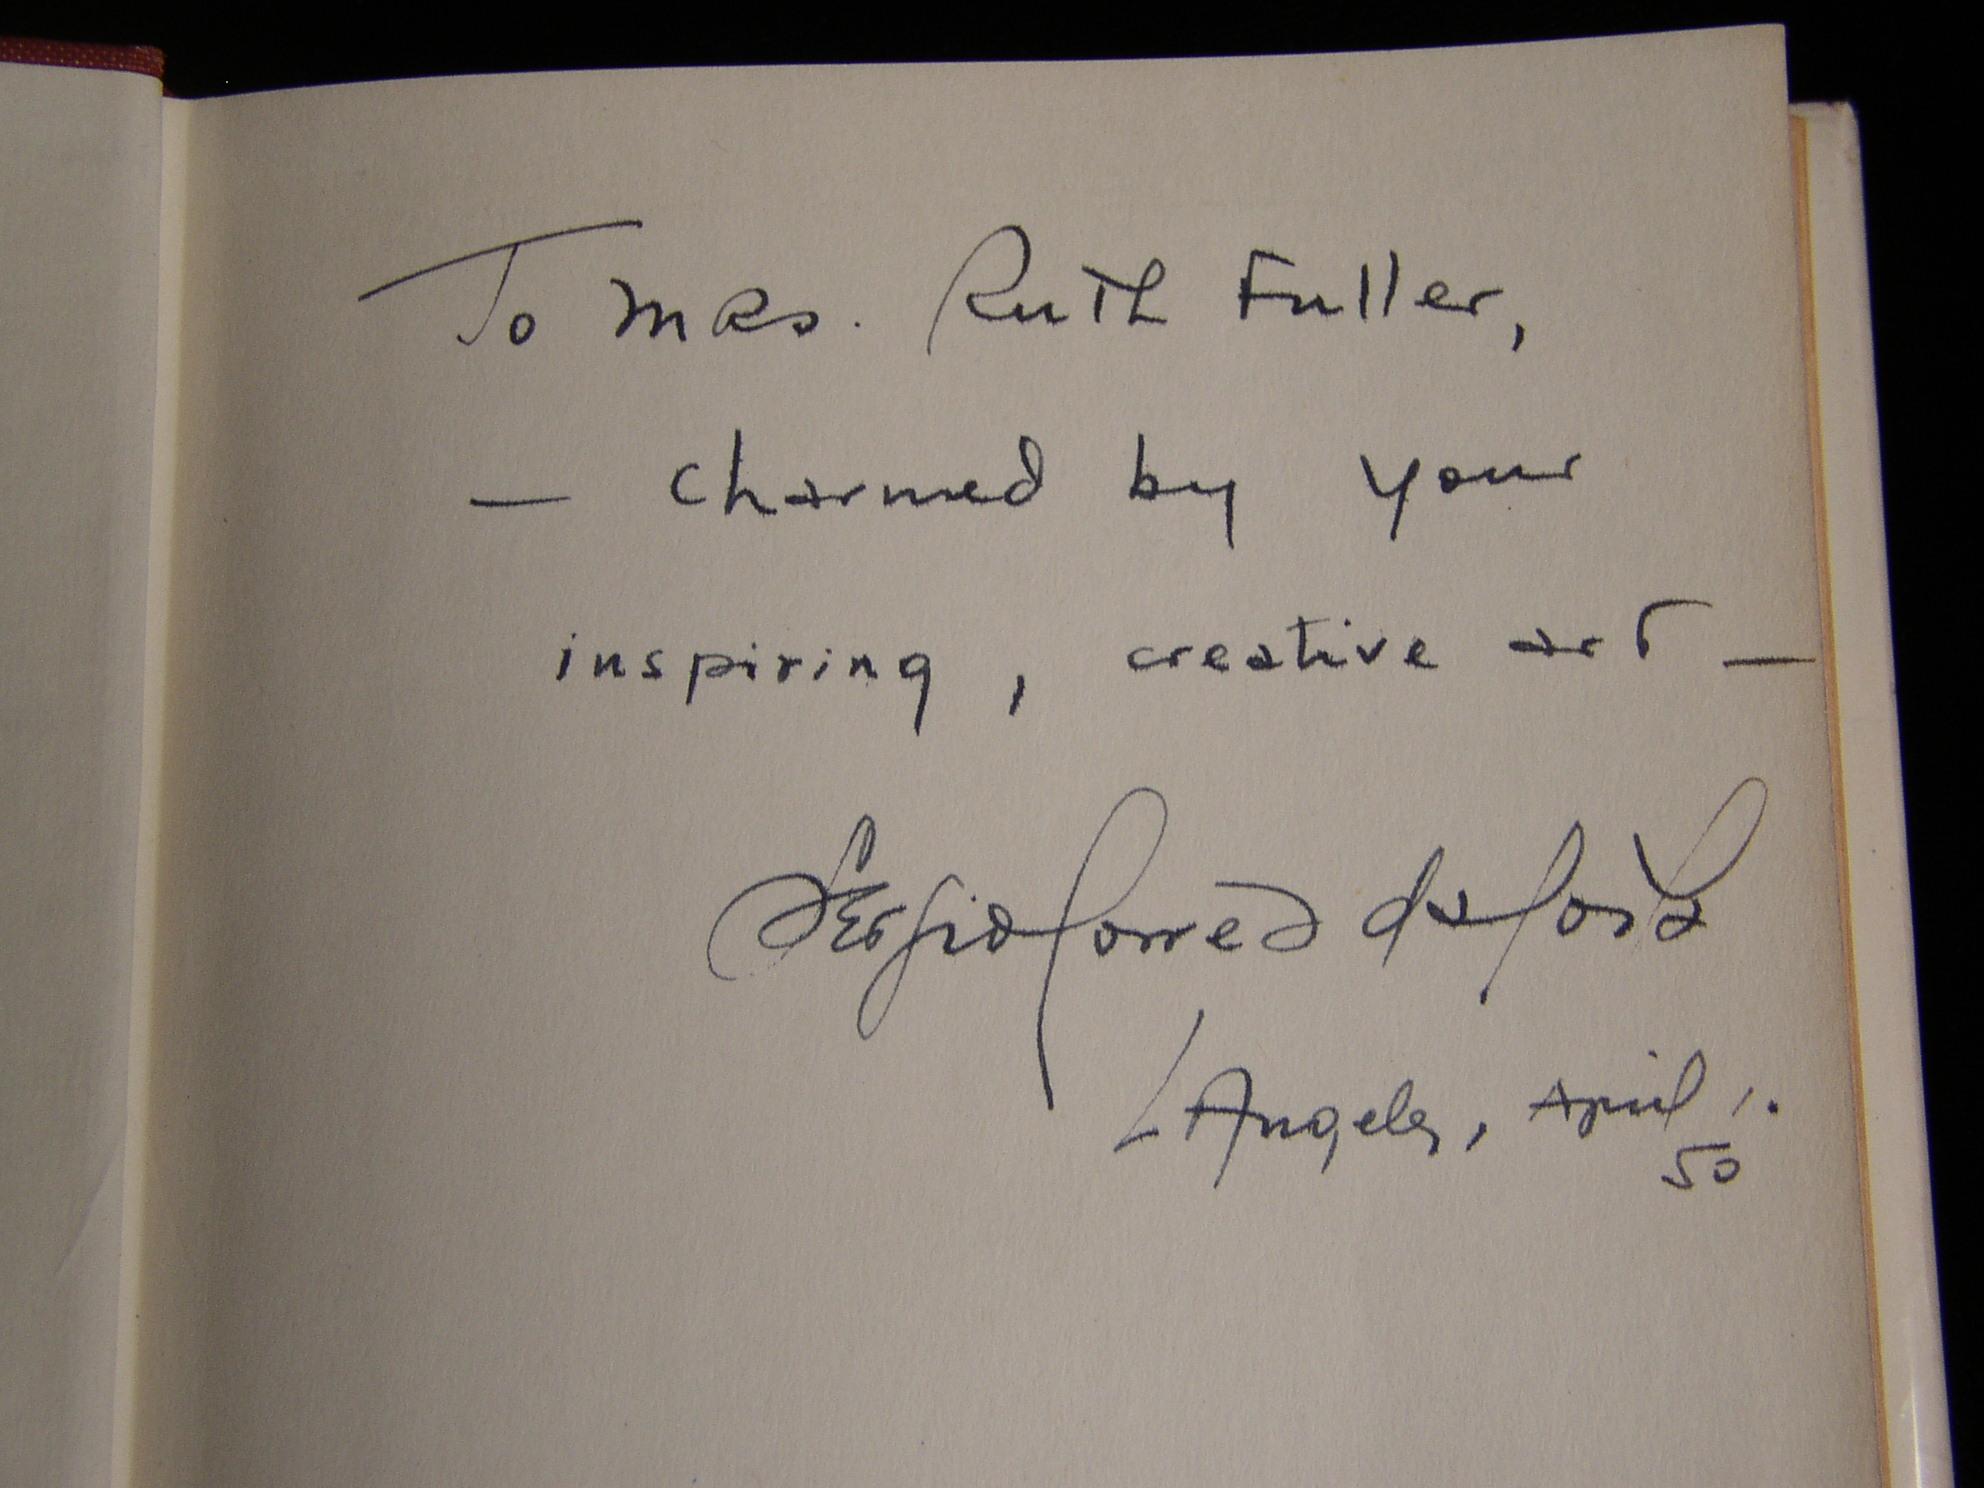 To Mrs. Ruth Fuller,
— charmed by your
inspiring, creative art —
Sergio Correa da Costa
L Angeles, April 1.
50